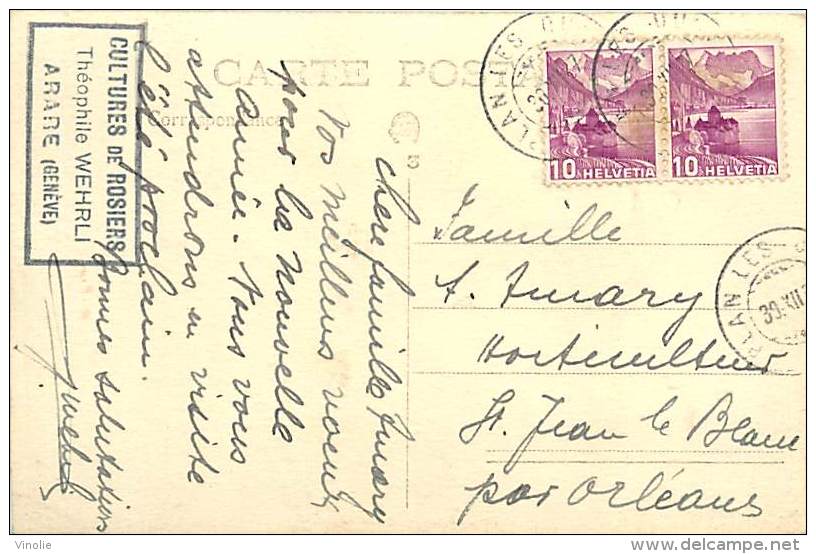 CARTE POSTALE
Correspondance
CULTURES DE ROSIERS
Théophile WEHRLI
ARARE (GENÈVE)
chère famille Amary
Vos meilleurs voeux
pour la nouvelle
année. Nous vous
attendrons en visite
l'été prochain.
Bonnes salutations
10 HELVETIA
10 HELVETIA
PLAN LES
30.XII
PLAN LES
30.XII
Famille
A. Amary
Horticulteur
St. Jean le Blanc
par Orléans
Vinolie
delcampe.net